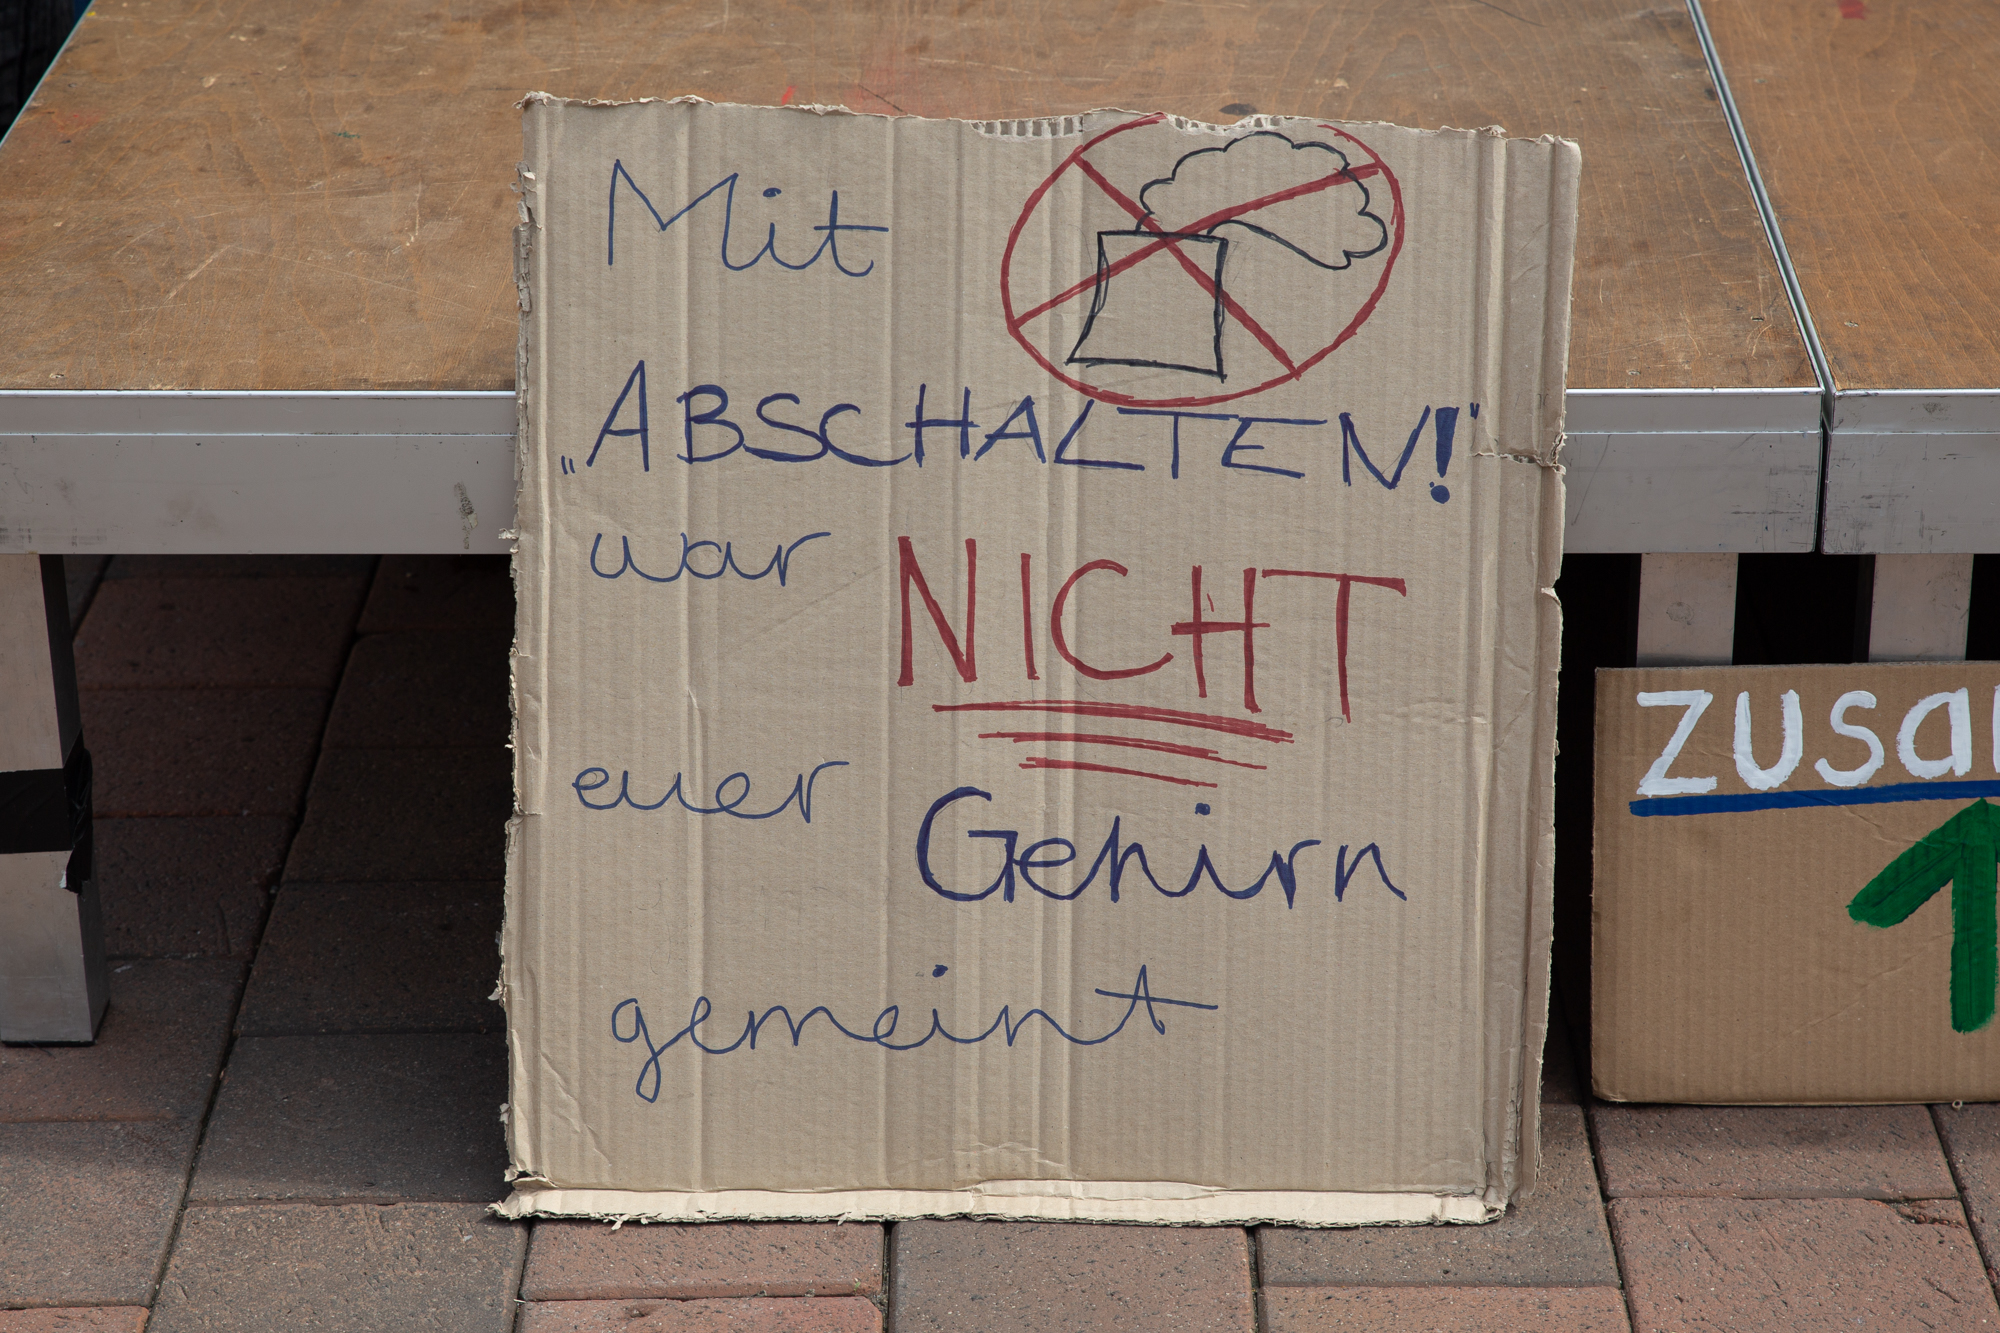 Mit
„ABSCHALTEN!"
war NICHT
euer Gehirn
gemeint
zusa